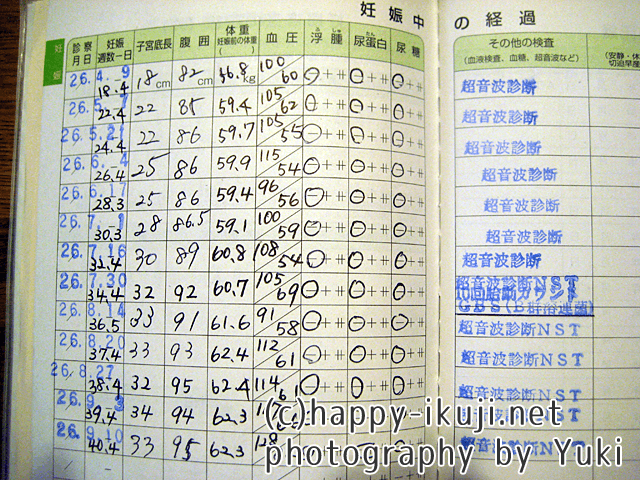 妊娠中の経過
妊娠
診察月日 妊娠週数-日 子宮底長 腹囲 体重 妊娠前の体重( ) 血圧 浮腫 尿蛋白 尿糖 その他の検査 (血液検査、血糖、超音波など)
26.4.9 18.4 18cm 82cm kg 100/60 - + ⧺ - + ⧺ - + ⧺ 超音波診断
26.5.7 22.4 22 85 59.4 105/62 - + ⧺ - + ⧺ - + ⧺ 超音波診断
26.5.21 24.4 22 86 59.7 105/55 - + ⧺ - + ⧺ - + ⧺ 超音波診断
26.6.4 26.4 25 86 59.9 115/54 - + ⧺ - + ⧺ - + ⧺ 超音波診断
26.6.17 28.3 25 86 59.4 96/56 - + ⧺ - + ⧺ - + ⧺ 超音波診断
26.7.1 30.3 28 86.5 59.1 100/59 - + ⧺ - + ⧺ - + ⧺ 超音波診断
26.7.16 32.4 30 89 60.8 108/54 - + ⧺ - + ⧺ - + ⧺ 超音波診断
26.7.30 34.4 32 92 60.7 105/69 - + ⧺ - + ⧺ - + ⧺ 超音波診断NST
GBS(B群溶連菌)
26.8.14 36.5 33 91 61.6 91/58 - + ⧺ - + ⧺ - + ⧺ 超音波診断NST
26.8.20 37.4 33 93 62.4 112/61 - + ⧺ - + ⧺ - + ⧺ 超音波診断NST
26.8.27 38.4 32 95 62.4 114/61 - + ⧺ - + ⧺ - + ⧺ 超音波診断NST
26.9.3 39.4 34 94 62.3 超音波診断NST
26.9.10 40.4 33 95 62.3 超音波診断NST
(c)happy-ikuji.net
photography by Yuki